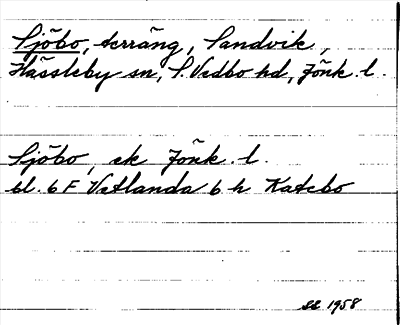 Sjöbo, terräng, Sandvik,
Hässleby sn, S. Vedbo hd, Jönk. l.
Sjöbo, ek Jönk. l.
bl. 6 F Vetlanda 6 h Katebo
1958